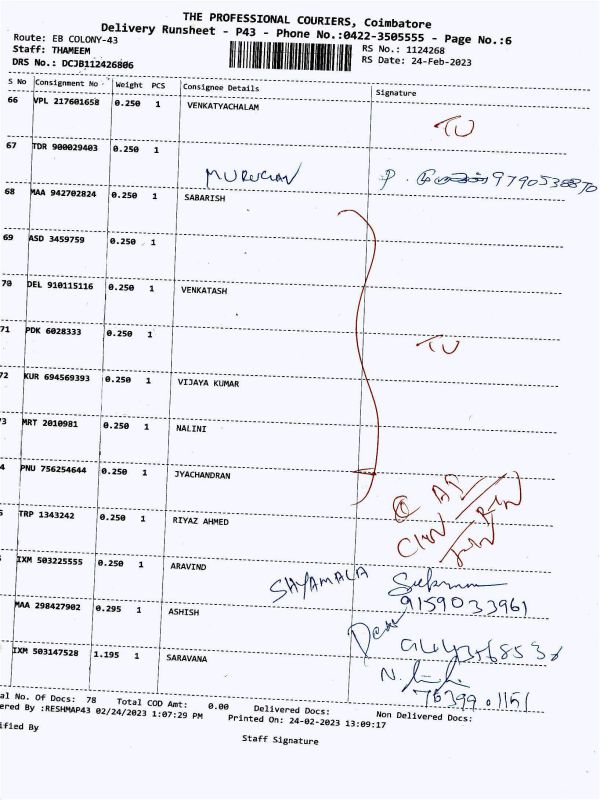 THE PROFESSIONAL COURIERS, Coimbatore
Delivery Runsheet - P43 - Phone No.:0422-3505555 - Page No.:6
Route: EB COLONY-43
RS No.: 1124268
Staff: THAMEEM
RS Date: 24-Feb-2023
DRS No.: DCJB112426806
S No Consignment No Weight PCS Consignee Details Signature
66 VPL 217601658 0.250 1 VENKATYACHALAM
67 TDR 900029403 0.250 1
MURUGAN 9790538870
68 MAA 942702824 0.250 1 SABARISH
69 ASD 3459759 0.250 1
70 DEL 910115116 0.250 1 VENKATASH
71 PDK 6028333 0.250 1
72 KUR 694569393 0.250 1 VIJAYA KUMAR
73 MRT 2010981 0.250 1 NALINI
4 PNU 756254644 0.250 1 JYACHANDRAN
TRP 1343242 0.250 1 RIYAZ AHMED
IXM 503225555 0.250 1 ARAVIND
SHYAMALA
9159033961
MAA 298427902 0.295 1 ASHISH
IXM 503147528 1.195 1 SARAVANA
al No. Of Docs: 78 Total COD Amt: 0.00 Delivered Docs: Non Delivered Docs:
ered By :RESHMAP43 02/24/2023 1:07:29 PM Printed On: 24-02-2023 13:09:17
ified By
Staff Signature